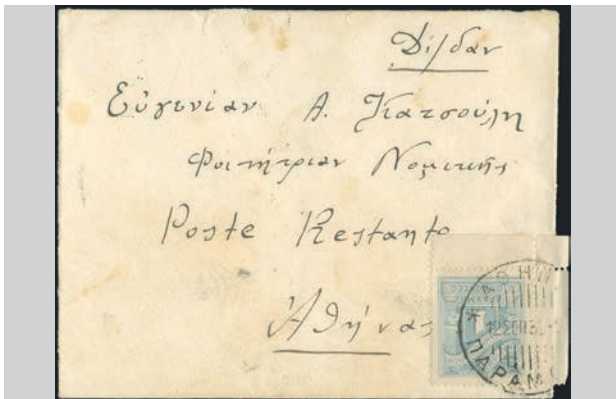 Δ/δαν
Εὐγενίαν Α. Κατσούλη
Φοιτήτριαν Νομικῆς
Poste Restante
Ἀθήνας
ΠΑΡΑΜ